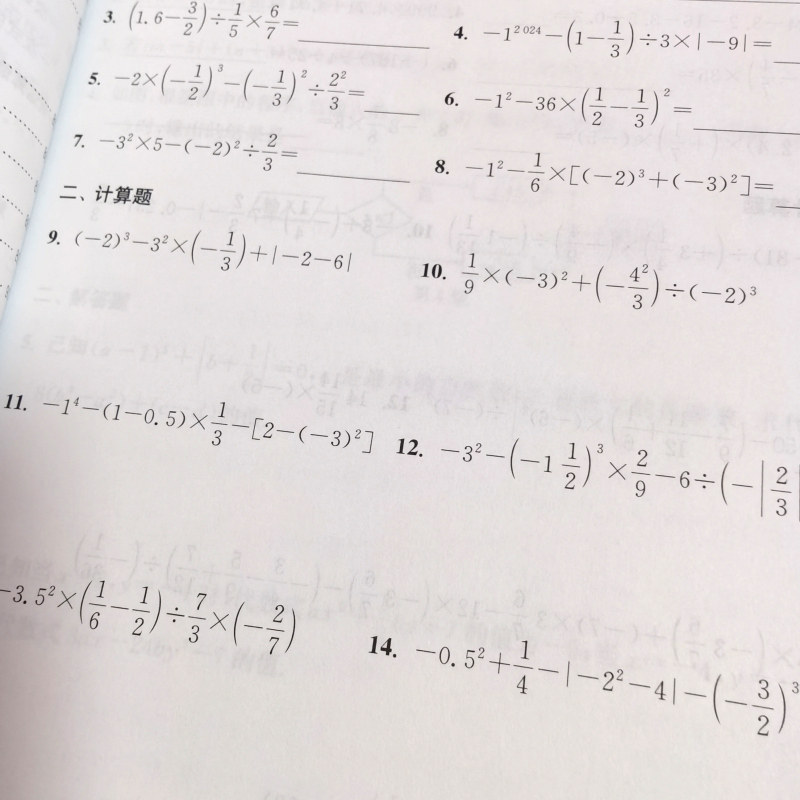 3. (1.6-3/2)÷1/5×6/7=
4. -1²⁰²⁴-(1-1/3)÷3×|-9|=
5. -2×(-1/2)³-(-1/3)²÷2²/3=
6. -1²-36×(1/2-1/3)²=
7. -3²×5-(-2)²÷2/3=
8. -1²-1/6×[(-2)³+(-3)²]=
二、计算题
9. (-2)³-3²×(-1/3)+|-2-6|
10. 1/9×(-3)²+(-4²/3)÷(-2)³
11. -1⁴-(1-0.5)×1/3-[2-(-3)²]
12. -3²-(-1 1/2)³×2/9-6÷(-|2/3|
-3.5²×(1/6-1/2)÷7/3×(-2/7)
14. -0.5²+1/4-|-2²-4|-(-3/2)³